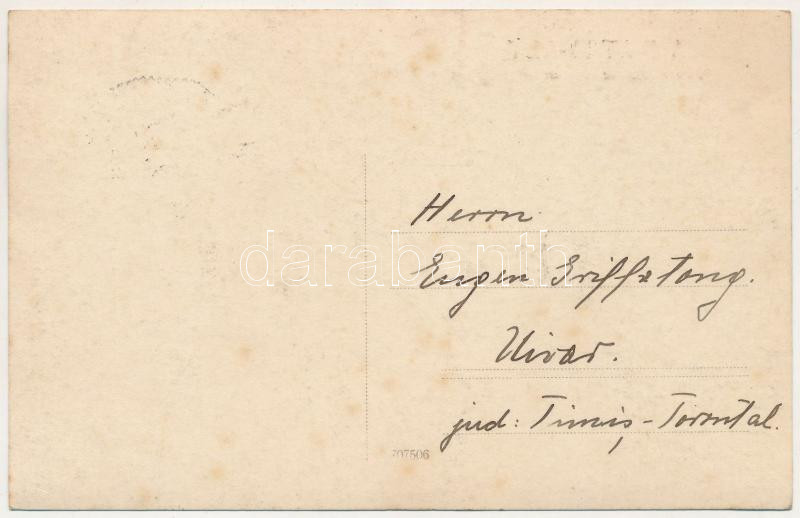 Herrn
Eugen
Uivar.
jud: Timiș-Torontal.
707506
darabanth